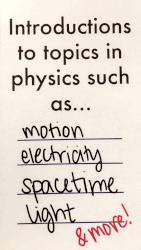 Introductions
to topics in
physics such
as...
motion
electricity
spacetime
light
& more!